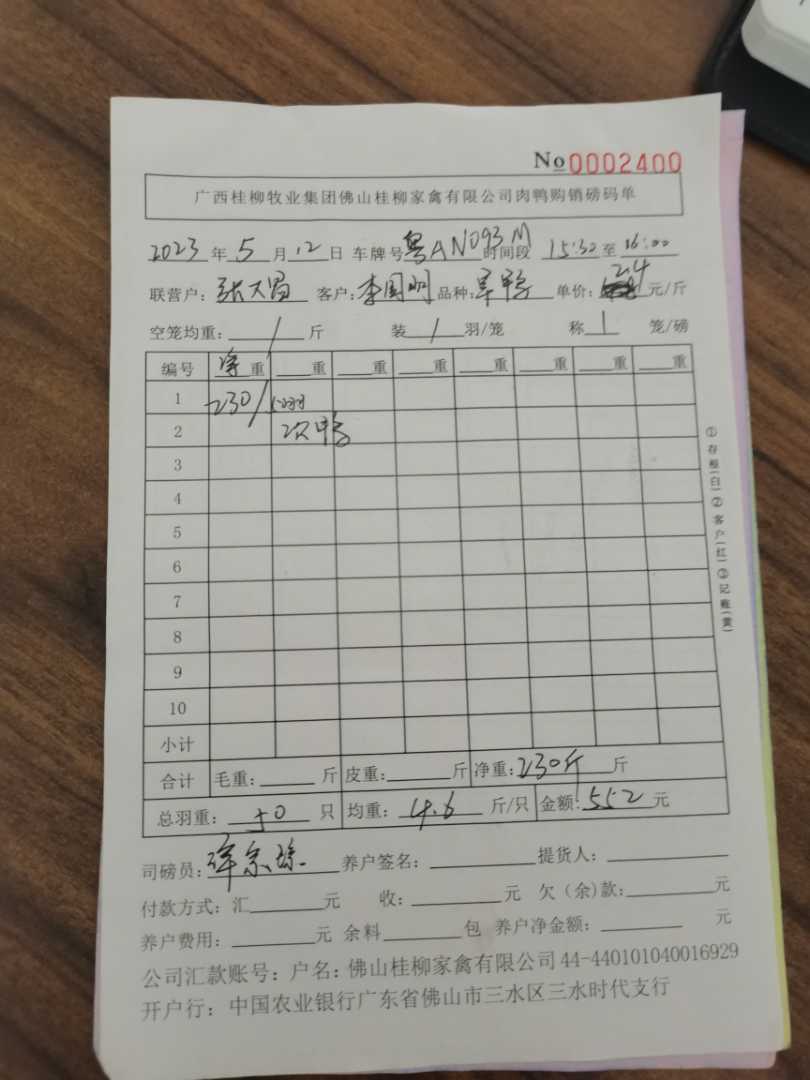 No 0002400
广西桂柳牧业集团佛山桂柳家禽有限公司肉鸭购销磅码单
2023年5月12日 车牌号粤AN093M时间段 15:30至16:00
联营户: 客户:李国明 品种: 单价:2.4元/斤
空笼均重:/斤 装/羽/笼 称1笼/磅
编号 净重 重 重 重 重 重 重 重
1 230/50羽
2 次鸭
3
4
5
6
7
8
9
10
小计
合计 毛重:斤 皮重:斤 净重:230斤斤
总羽重:50只 均重:4.6斤/只 金额:552元
司磅员: 养户签名: 提货人:
付款方式:汇元 收:元 欠(余)款:元
养户费用:元 余料包 养户净金额:元
公司汇款账号:户名:佛山桂柳家禽有限公司44-440101040016929
开户行:中国农业银行广东省佛山市三水区三水时代支行
①存根(白)②客户(红)③记账(黄)